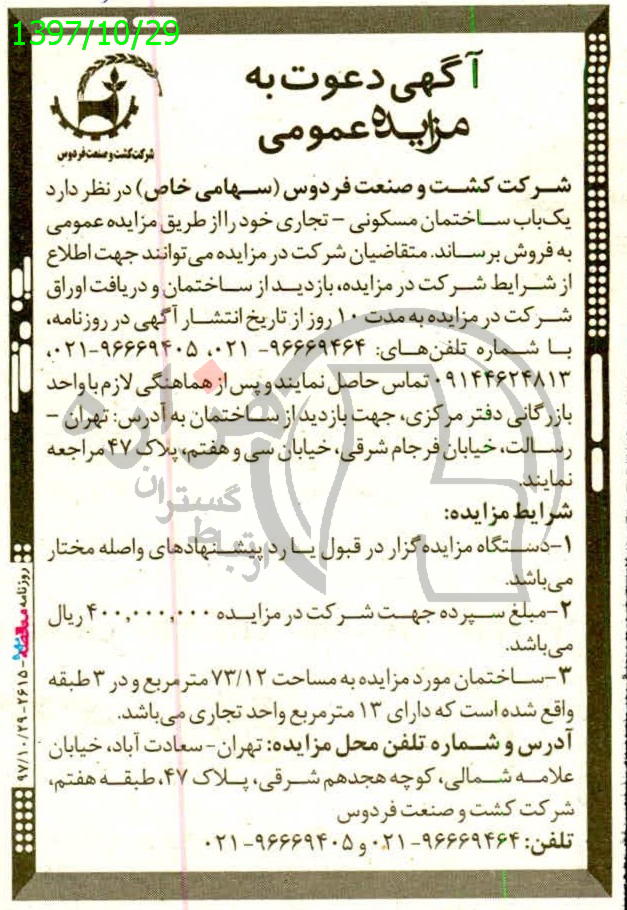 1397/10/29
آگهی دعوت به
مزایده عمومی
شرکت کشت و صنعت فردوس
شرکت کشت و صنعت فردوس (سهامی خاص) در نظر دارد
یک‌باب ساختمان مسکونی – تجاری خود را از طریق مزایده عمومی
به فروش برساند. متقاضیان شرکت در مزایده می‌توانند جهت اطلاع
از شرایط شرکت در مزایده، بازدید از ساختمان و دریافت اوراق
شرکت در مزایده به مدت ۱۰ روز از تاریخ انتشار آگهی در روزنامه،
با شماره تلفن‌های: ۹۶۶۶۹۴۶۴- ۰۲۱، ۹۶۶۶۹۴۰۵-۰۲۱،
۰۹۱۴۴۶۲۴۸۱۳ تماس حاصل نمایند و پس از هماهنگی لازم با واحد
بازرگانی دفتر مرکزی، جهت بازدید از ساختمان به آدرس: تهران –
رسالت، خیابان فرجام شرقی، خیابان سی و هفتم، پلاک ۴۷ مراجعه
نمایند.
شرایط مزایده:
۱-دستگاه مزایده‌گزار در قبول یا رد پیشنهادهای واصله مختار
می‌باشد.
۲-مبلغ سپرده جهت شرکت در مزایده ۴۰۰,۰۰۰,۰۰۰ ریال
می‌باشد.
۳-ساختمان مورد مزایده به مساحت ۷۳/۱۲ متر مربع و در ۳ طبقه
واقع شده است که دارای ۱۳ متر مربع واحد تجاری می‌باشد.
آدرس و شماره تلفن محل مزایده: تهران- سعادت آباد، خیابان
علامه شمالی، کوچه هجدهم شرقی، پلاک ۴۷، طبقه هفتم،
شرکت کشت و صنعت فردوس
تلفن: ۹۶۶۶۹۴۶۴-۰۲۱ و ۹۶۶۶۹۴۰۵-۰۲۱
روزنامه مناقصه مزایده -۲۶۱۵-۹۷/۱۰/۲۹
هزاره
گستران
ارتباط